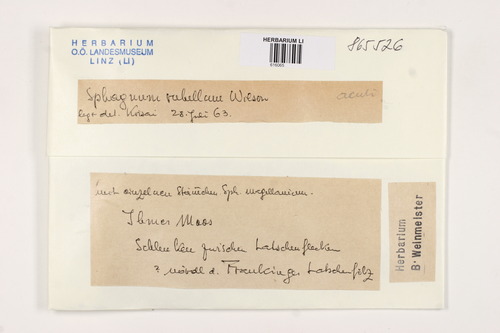 HERBARIUM
O.Ö. LANDESMUSEUM
LINZ (LI)
HERBARIUM LI
865526
Sphagnum rubellum Wilson
leg et det. Krisai 28. Juli 63.
mit einzelnen Stämmchen Sph. magellanicum.
Ibmer Moos
Schlenken zwischen Latschenflecken
nördl d. Frankinger Latschenfilz
Herbarium
B. Weinmeister